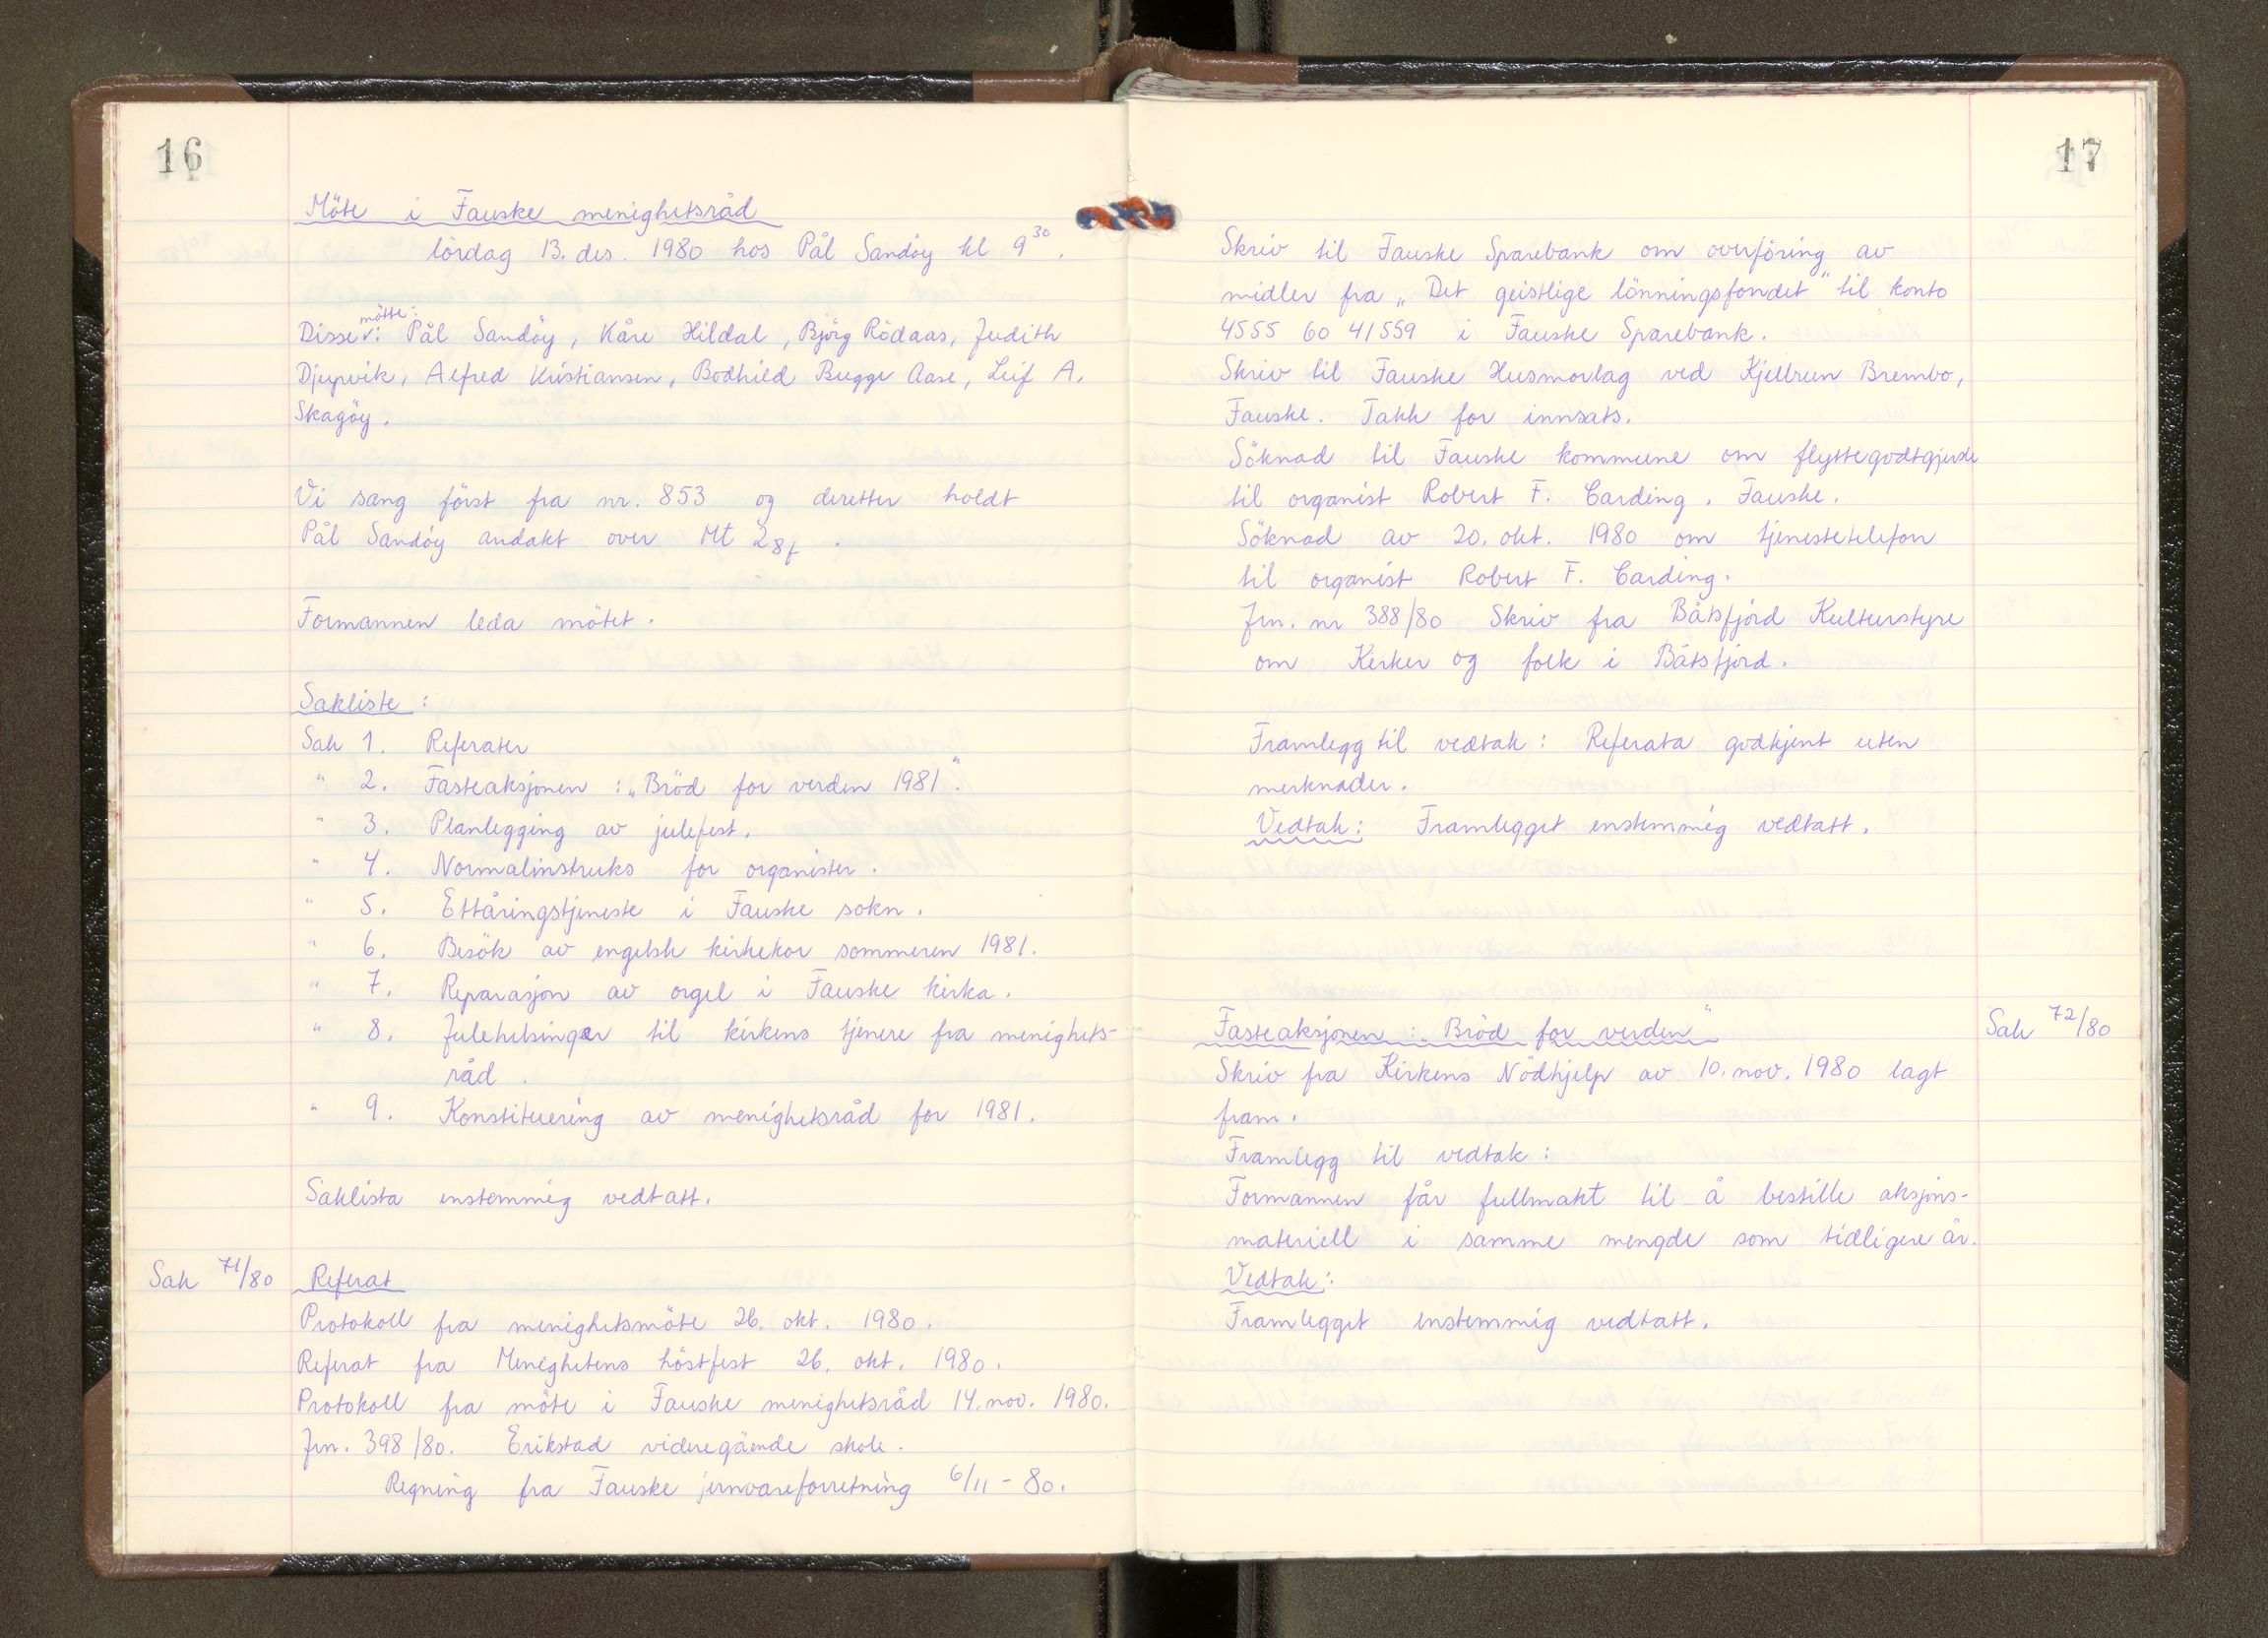 16
Möte i Fauske menighetsråd
lördag 13. des. 1980 hos Pål Sandöy kl 9 30.
Disse mötte: Pål Sandöy, Kåre Hildal, Björg Rödaas, Judith
Djupvik, Alfred Kristiansen, Bodhild Bugge Aase, Leif A.
Skagöy.
Vi sang först fra nr. 853 og deretter holdt
Pål Sandöy andakt over Mt 2 8f.
Formannen leda mötet.
Sakliste:
Sak 1. Referater
" 2. Fasteaksjonen : „Bröd for verden 1981".
" 3. Planlegging av julefest.
" 4. Normalinstruks for organister.
" 5. Ettåringstjeneste i Fauske sokn.
" 6. Besök av engelsk kirkekor sommeren 1981.
" 7. Reparasjon av orgel i Fauske kirka.
" 8. Julehelsinger til kirkens tjenere fra menighets-
råd.
" 9. Konstituering av menighetsråd for 1981.
Saklista enstemmig vedtatt.
Sak 71/80 Referat
Protokoll fra menighetsmöte 26. okt. 1980.
Referat fra Menighetens höstfest 26. okt. 1980.
Protokoll fra möte i Fauske menighetsråd 14. nov. 1980.
Jrn. 398/80. Erikstad videregående skole.
Regning fra Fauske jernvareforretning 6/11 - 80.
17
Skriv til Fauske Sparebank om overföring av
midler fra „Det geistlige lönningsfondet" til konto
4555 60 41559 i Fauske Sparebank.
Skriv til Fauske Husmorlag ved Kjellrun Brembo,
Fauske. Takk for innsats.
Söknad til Fauske kommune om flyttegodtgjerde
til organist Robert F. Carding. Fauske.
Söknad av 20. okt. 1980 om tjenestetelefon
til organist Robert F. Carding.
Jrn. nr 388/80 Skriv fra Båtsfjörd Kulturstyre
om Kirker og folk i Båtsfjord.
Framlegg til vedtak: Referata godkjent uten
merknader.
Vedtak: Framlegget enstemmig vedtatt.
Fasteaksjonen : „Bröd for verden" Sak 72/80
Skriv fra Kirkens Nödhjelp av 10. nov. 1980 lagt
fram.
Framlegg til vedtak:
Formannen får fullmakt til å bestille aksjons-
materiell i samme mengde som tidligere år.
Vedtak:
Framlegget enstemmig vedtatt.